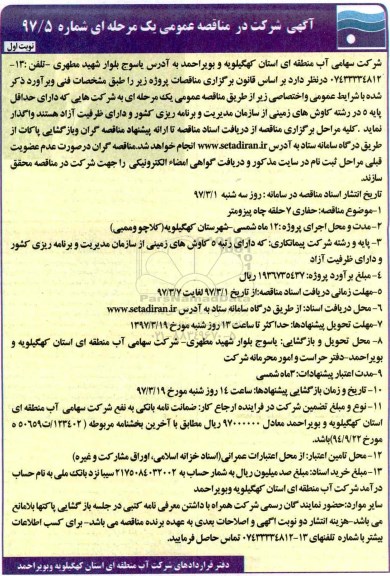 آگهی شرکت در مناقصه عمومی یک مرحله ای شماره ۹۷/۵
نوبت اول
شرکت سهامی آب منطقه ای استان کهگیلویه و بویراحمد به آدرس یاسوج بلوار شهید مطهری -تلفن :۱۳-
۰۷۴۳۳۳۳۴۸۱۲ درنظر دارد بر اساس قانون برگزاری مناقصات پروژه زیر را طبق مشخصات فنی وبرآورد ذکر
شده با شرایط عمومی واختصاصی زیر از طریق مناقصه عمومی یک مرحله ای به شرکت هایی که دارای حداقل
پایه ۵ در رشته کاوش های زمینی از سازمان مدیریت و برنامه ریزی کشور و دارای ظرفیت آزاد هستند واگذار
نماید .کلیه مراحل برگزاری مناقصه از دریافت اسناد مناقصه تا ارائه پیشنهاد مناقصه گران وبازگشایی پاکات از
طریق درگاه سامانه ستاد به آدرس www.setadiran.ir انجام خواهد شد.مناقصه گران درصورت عدم عضویت
قبلی مراحل ثبت نام در سایت مذکور و دریافت گواهی امضاء الکترونیکی را جهت شرکت در مناقصه محقق
سازند.
تاریخ انتشار اسناد مناقصه در سامانه : روز سه شنبه ۹۷/۳/۱
۱-موضوع مناقصه: حفاری ۷ حلقه چاه پیزومتر
۲-مدت و محل اجرای پروژه:۱۲ ماه شمسی-شهرستان کهگیلویه(کلاچووممبی)
۳- پایه و رشته شرکت پیمانکاری: که دارای رتبه ۵ کاوش های زمینی از سازمان مدیریت و برنامه ریزی کشور
و دارای ظرفیت آزاد
۴-مبلغ برآورد پروژه: ۱۹۳۶۷۳۵۴۳۷ ریال
۵-مهلت زمانی دریافت اسناد مناقصه:از تاریخ ۹۷/۳/۱ لغایت ۹۷/۳/۷
۶-محل دریافت اسناد: از طریق درگاه سامانه ستاد به آدرس www.setadiran.ir
۷-مهلت تحویل پیشنهادها: حداکثر تا ساعت ۱۳ روز شنبه مورخ ۱۳۹۷/۳/۱۹
۸- محل تحویل و بازگشایی: یاسوج بلوار شهید مطهری- شرکت سهامی آب منطقه ای استان کهگیلویه و
بویراحمد-دفتر حراست و امور محرمانه شرکت
۹-مدت اعتبار پیشنهادات: ۳ماه شمسی
۱۰-تاریخ و زمان بازگشایی پیشنهادها: ساعت ۱۴ روز شنبه مورخ ۹۷/۳/۱۹
۱۱-نوع و مبلغ تضمین شرکت در فرآینده ارجاع کار: ضمانت نامه بانکی به نفع شرکت سهامی آب منطقه ای
استان کهگیلویه و بویراحمد معادل ۹۷۰۰۰۰۰۰ ریال مطابق با آخرین بخشنامه مربوطه (۱۲۳۴۰۲/ت۵۰۶۵۹ ه
مورخ ۹۴/۹/۲۲)باشد.
۱۲-محل تامین اعتبار: از محل اعتبارات عمرانی(اسناد خزانه اسلامی، اوراق مشارکت و غیره)
۱۳-مبلغ خرید اسناد: مبلغ صد میلیون ریال به شمار حساب به ۲۱۷۵۰۸۴۰۳۲۰۰۲ سیبا نزد بانک ملی به نام حساب
درآمد شرکت آب منطقه ای استان کهگیلویه وبویراحمد
سایر موارد:حضور نمایندگان رسمی شرکت همراه با داشتن معرفی نامه کتبی در جلسه بازگشایی پاکتها بلامانع
می باشد-هزینه انتشار دو نوبت آگهی و اصلاحات بعدی به عهده برنده مناقصه می باشد- برای کسب اطلاعات
بیشتر با شماره تلفنهای ۱۳-۰۷۴۳۳۳۳۴۸۱۲ تماس حاصل فرمایید.
دفتر قراردادهای شرکت آب منطقه ای استان کهگیلویه وبویراحمد